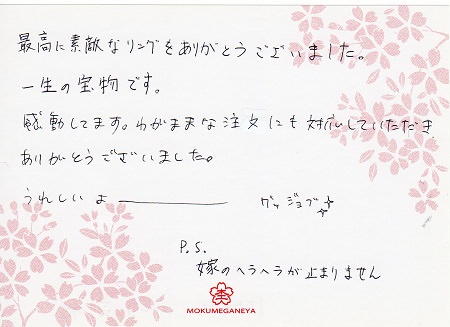 最高に素敵なリングをありがとうございました。
一生の宝物です。
感動してます。わがままな注文にも対応していただき
ありがとうございました。
うれしいよ―――― グッジョブ☆
P.S.
嫁のヘラヘラが止まりません
MOKUMEGANEYA